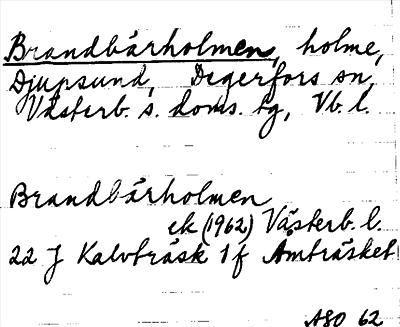 Brandbärholmen, holme,
Djupsund, Degerfors sn,
Västerb. s. doms. tg, Vb. l.
Brandbärholmen
ek (1962) Västerb. l.
22 J Kalvträsk 1 f Amträsket
ASO 62